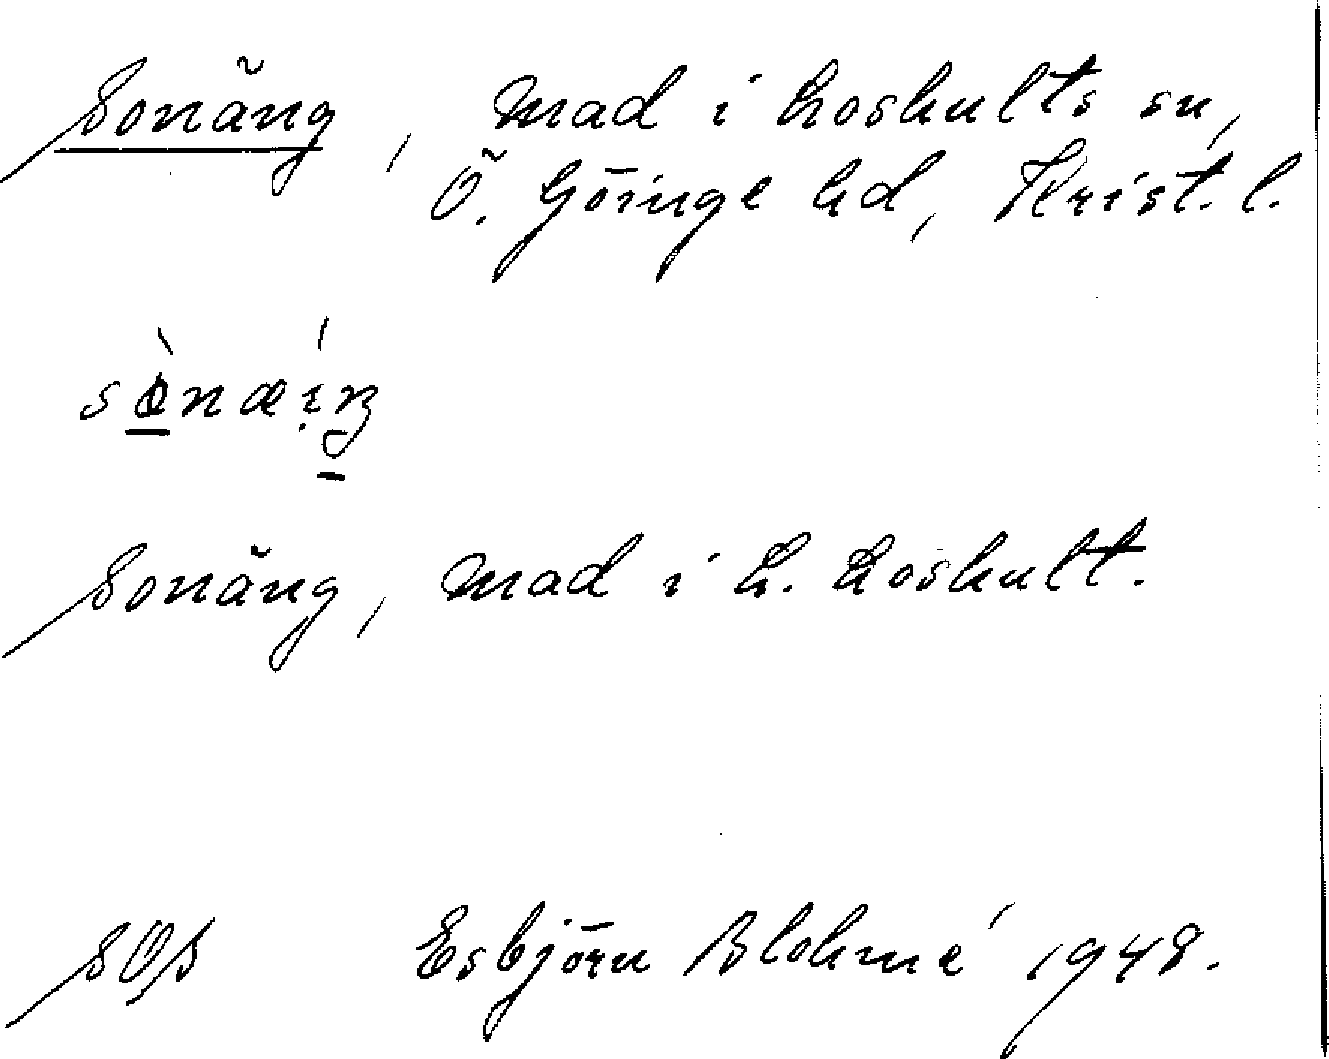 Sonäng, mad i Loshults sn,
Ö. Göinge hd, Krist. l.
Sonäng, mad i L. Loshult.
SOÄ Esbjörn Blohmé 1948.